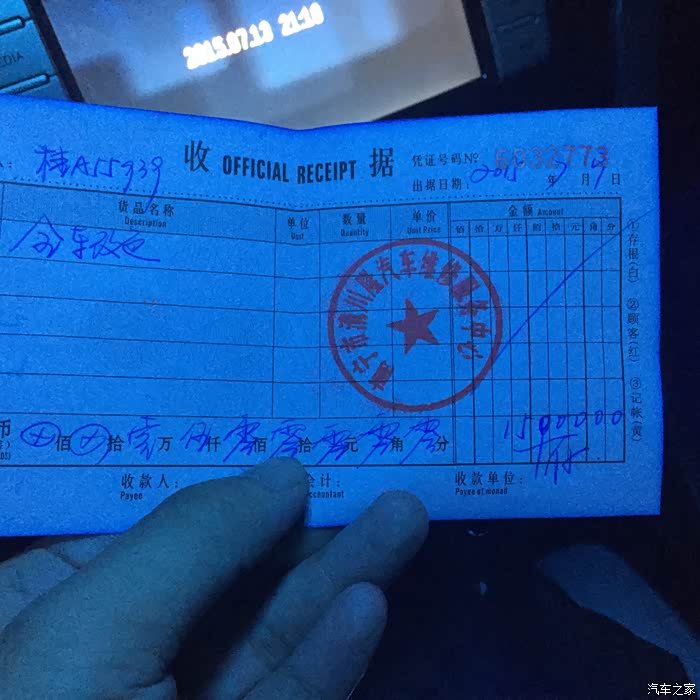 2015.07.13 21:10
收 OFFICIAL RECEIPT 据
凭证号码No 6032773
桂A55939
出据日期: 2015年7月9日
货品名称 单位 数量 单价 金额 Amount
Description Unit Quantity Unit Price
佰 拾 万 仟 佰 拾 元 角 分
全车改色
汽车维修服务中心
①存根(白) ②顾客(红) ③记帐(黄)
币 佰 拾 万 仟 零佰 零拾 零元 零角 零分
1500000
收款人: 会计: 收款单位:
Payee Accountant
汽车之家